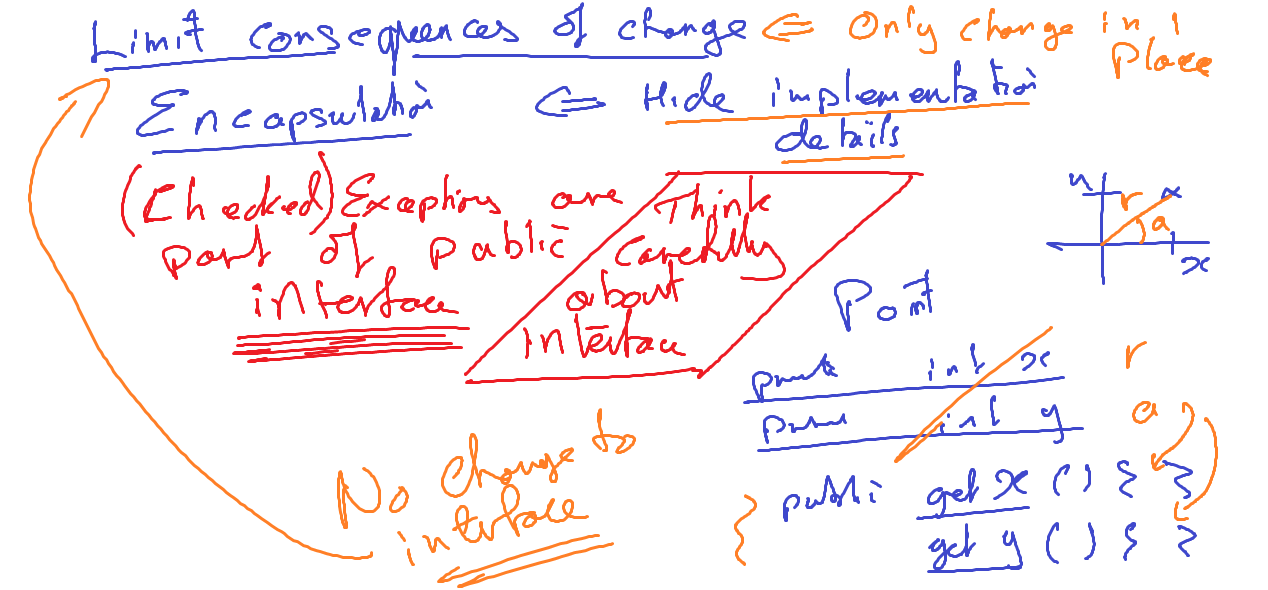 Limit consequences of change ⇐ Only change in 1
Place
Encapsulation ⇐ Hide implementation
details
(Checked) Exceptions are
part of public
interface
Think
Carefully
about
Interface
r
a
x
Point
int x
int y
r
a
public get x () { }
get y () { }
No change to
interface